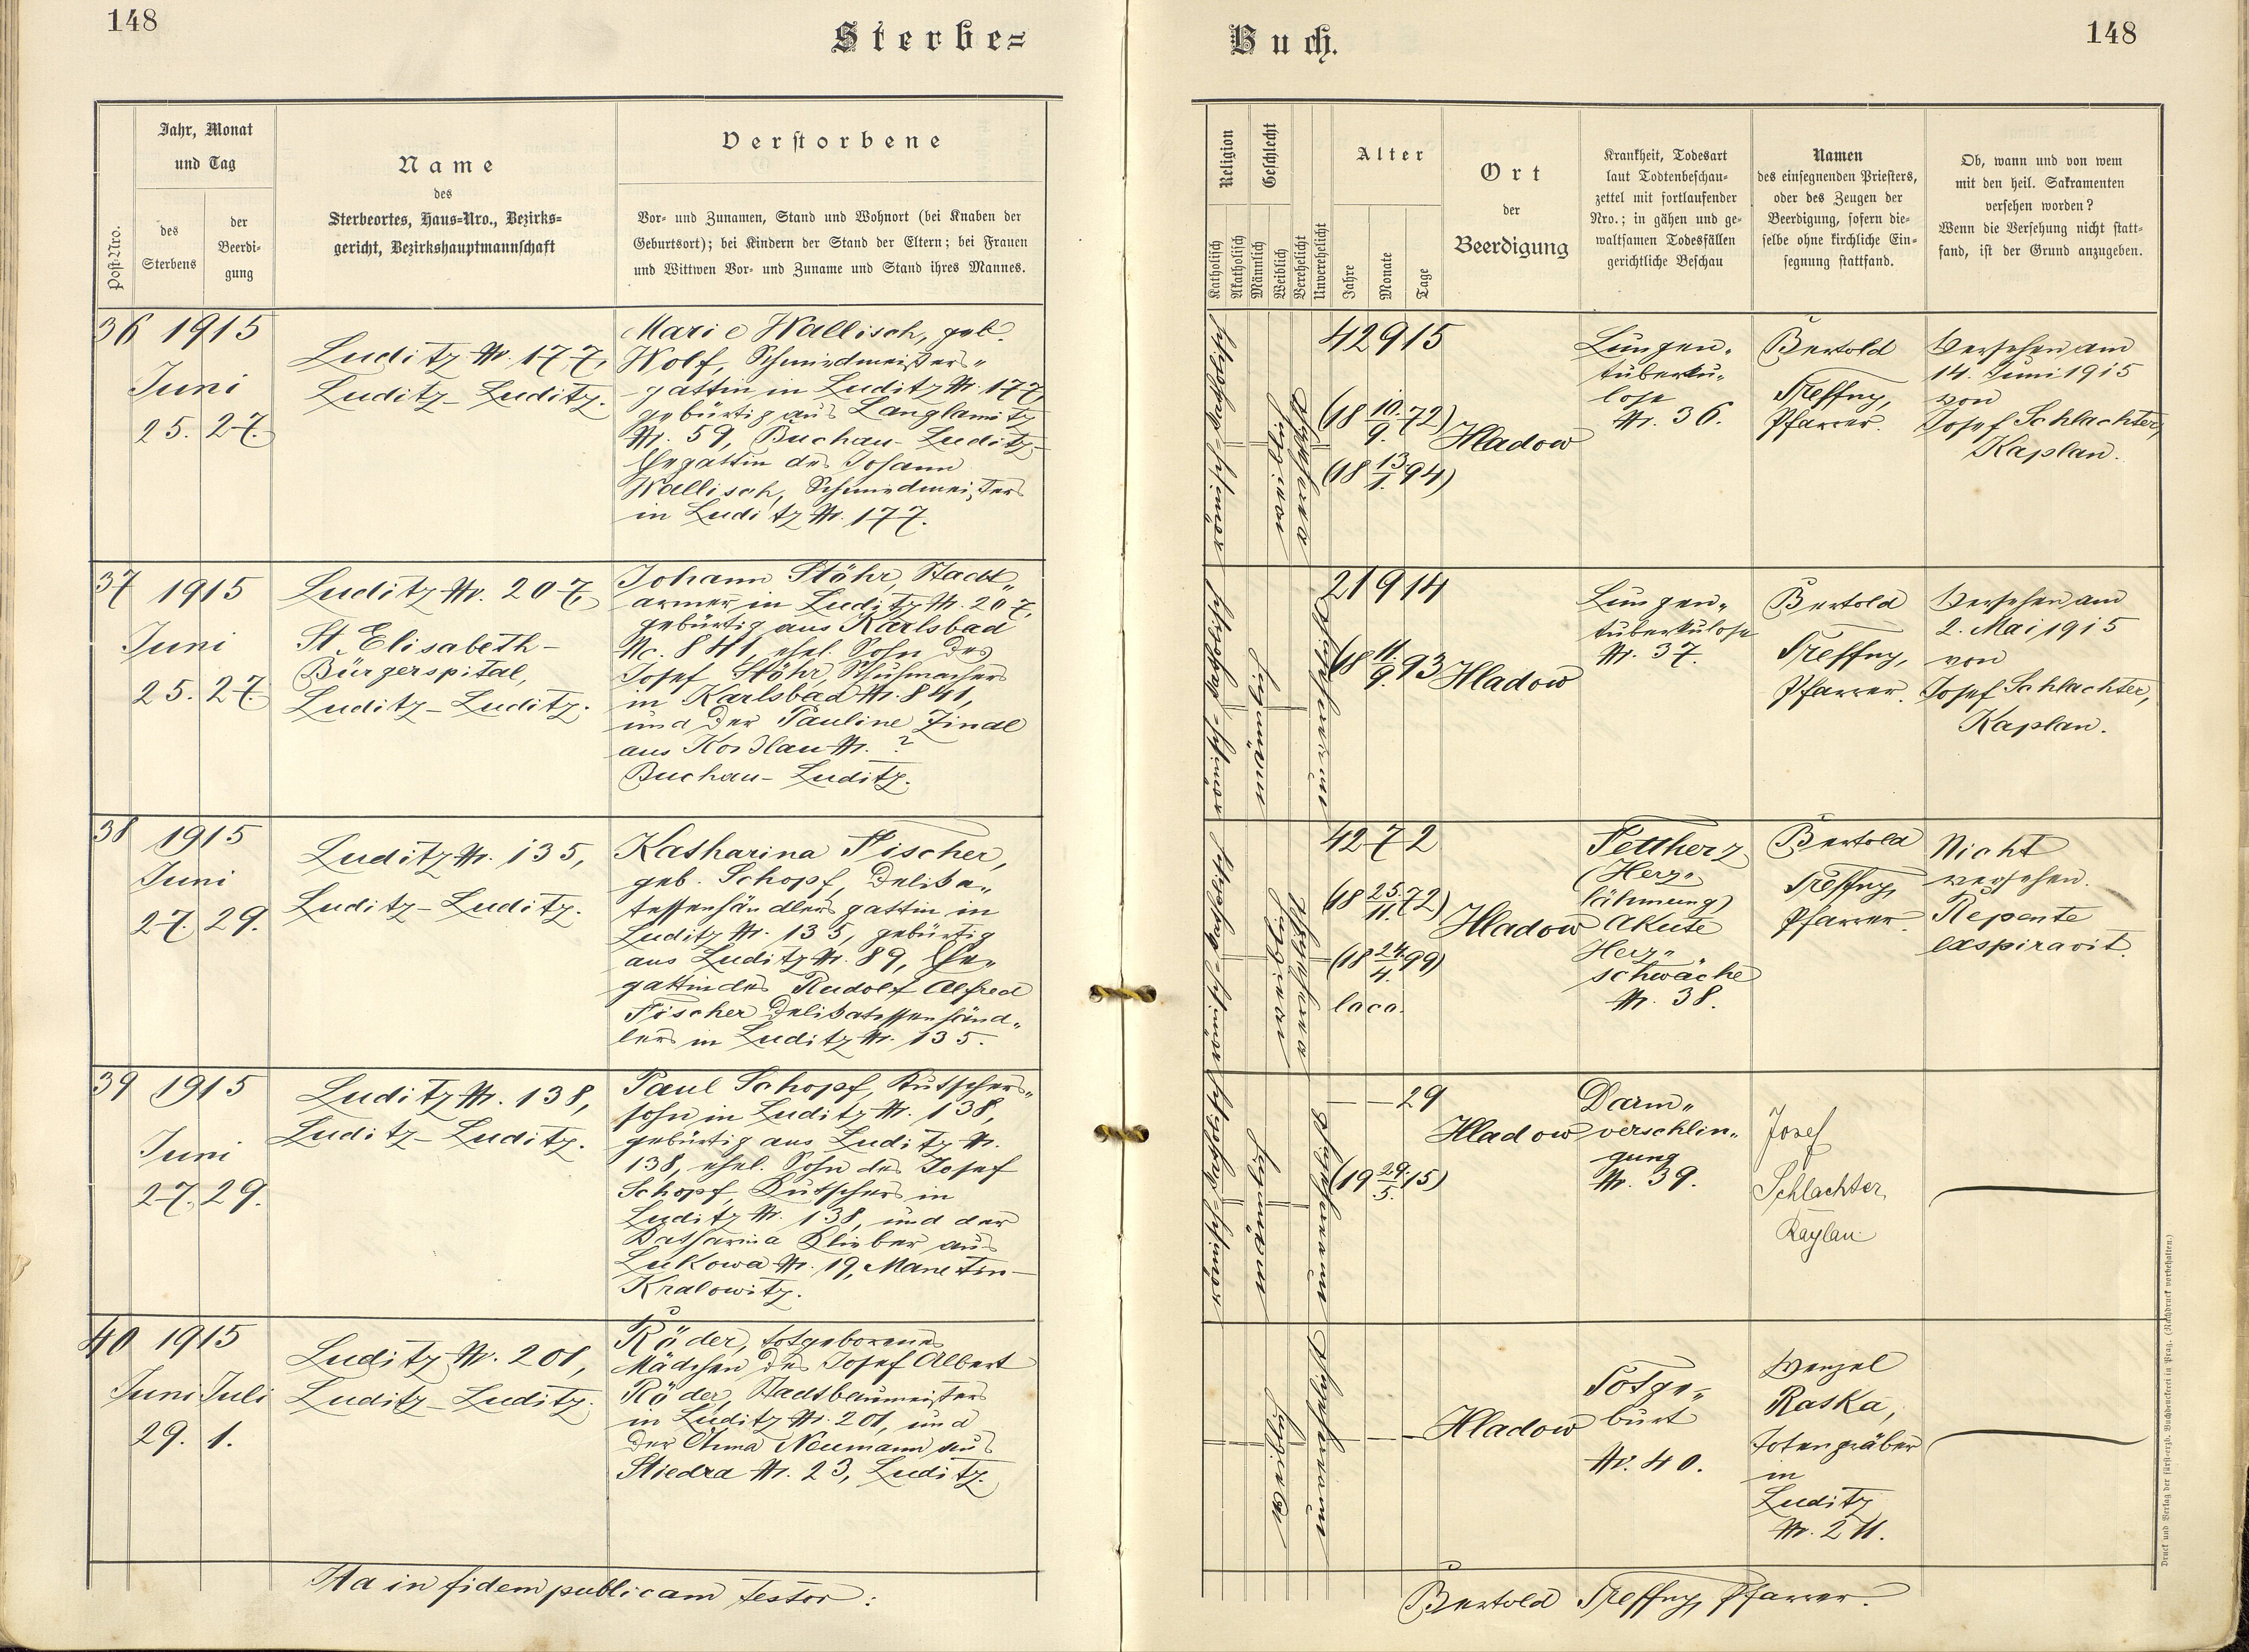 148
Sterbe=
Jahr, Monat
und Tag
Post-Nro.
des
Sterbens
der
Beerdi-
gung
Name
des
Sterbeortes, Haus-Nro., Bezirks-
gericht, Bezirkshauptmannschaft
Verstorbene
Vor- und Zunamen, Stand und Wohnort (bei Knaben der
Geburtsort); bei Kindern der Stand der Eltern; bei Frauen
und Wittwen Vor- und Zuname und Stand ihres Mannes.
36 1915
Juni
25. 27.
Luditz Nr. 177,
Luditz-Luditz.
Marie Wallisch, geb.
Wolf, Schmiedmeisters„
gattin in Luditz Nr. 177,
gebürtig aus Langlamitz
Nr. 59, Buchau-Luditz,
Ehegattin des Johann
Wallisch, Schmiedmeisters
in Luditz Nr. 177.
37 1915
Juni
25. 27.
Luditz Nr. 207,
St. Elisabeth-
Bürgerspital,
Luditz-Luditz.
Johann Stöhr, Stadt„
armer in Luditz Nr. 207,
gebürtig aus Karlsbad
No. 841, ehel. Sohn des
Josef Stöhr, Schuhmachers
in Karlsbad Nr. 841,
und der Pauline Zindl
aus Koßlau Nr. ?
Buchau-Luditz.
38 1915
Juni
27. 29.
Luditz Nr. 135,
Luditz-Luditz.
Katharina Fischer,
geb. Schopf, Delika„
tessenhändlersgattin in
Luditz Nr. 135, gebürtig
aus Luditz Nr. 89, Ehe„
gattin des Rudolf Alfred
Fischer Delikatessenhänd„
lers in Luditz Nr. 135.
39 1915
Juni
27. 29.
Luditz Nr. 138,
Luditz-Luditz.
Paul Schopf, Kutschers„
sohn in Luditz Nr. 138,
gebürtig aus Luditz Nr.
138, ehel. Sohn des Josef
Schopf, Kutschers in
Luditz Nr. 138, und der
Katharina Klieber aus
Lukowa Nr. 19, Manetin-
Kralowitz.
40 1915
Juni Juli
29. 1.
Luditz Nr. 201,
Luditz-Luditz.
Röder, totgeborenes
Mädchen des Josef Albert
Röder, Stadtbaumeisters
in Luditz Nr. 201, und
der Neumann aus
Stiedra Nr. 23, Luditz.
Ita in fidem publicam testor:
Buch.
148
Religion
Katholisch
Akatholisch
Geschlecht
Männlich
Weiblich
Verehelicht
Unverehelicht
Alter
Jahre
Monate
Tage
Ort
der
Beerdigung
Krankheit, Todesart
laut Todtenbeschau-
zettel mit fortlaufender
Nro.; in gähen und ge-
waltsamen Todesfällen
gerichtliche Beschau
Namen
des einsegnenden Priesters,
oder des Zeugen der
Beerdigung, sofern die-
selbe ohne kirchliche Ein-
segnung stattfand.
Ob, wann und von wem
mit den heil. Sakramenten
versehen worden?
Wenn die Versehung nicht statt-
fand, ist der Grund anzugeben.
römisch-katholisch
weiblich
verehelicht
42 9 15
(18 10./9. 72)
(18 13/1. 94)
Hladow
Lungen„
tuberku„
lose
Nr. 36.
Bertold
Treffny,
Pfarrer.
Versehen am
14. Juni 1915
von
Josef Schlachter,
Kaplan.
römisch-katholisch
männlich
unverehelicht
21 9 14
18 11./9. 93
Hladow
Lungen„
tuberkulose
Nr. 37.
Bertold
Treffny,
Pfarrer.
Versehen am
2. Mai 1915
von
Josef Schlachter,
Kaplan.
römisch-katholisch
weiblich
verehelicht
42 7 2
(18 25./11. 72)
(18 24./4. 99)
loco.
Hladow
Fettherz
(Herz„
lähmung)
Akute
Herz„
schwäche
Nr. 38.
Bertold
Treffny,
Pfarrer.
Nicht
versehen.
Repente
exspiravit.
römisch-katholisch
männlich
unverehelicht
— — 29
(19 29./5. 15)
Hladow
Darm„
verschlin„
gung
Nr. 39.
Josef
Schlachter,
Kaplan
weiblich
unverehelicht
— —
Hladow
Totge„
burt
Nr. 40.
Wenzel
Raska,
Totengräber
in
Luditz
Nr. 211.
Bertold Treffny, Pfarrer.
Druck und Verlag der fürst-erzb. Buchdruckerei in Prag. (Nachdruck vorbehalten.)